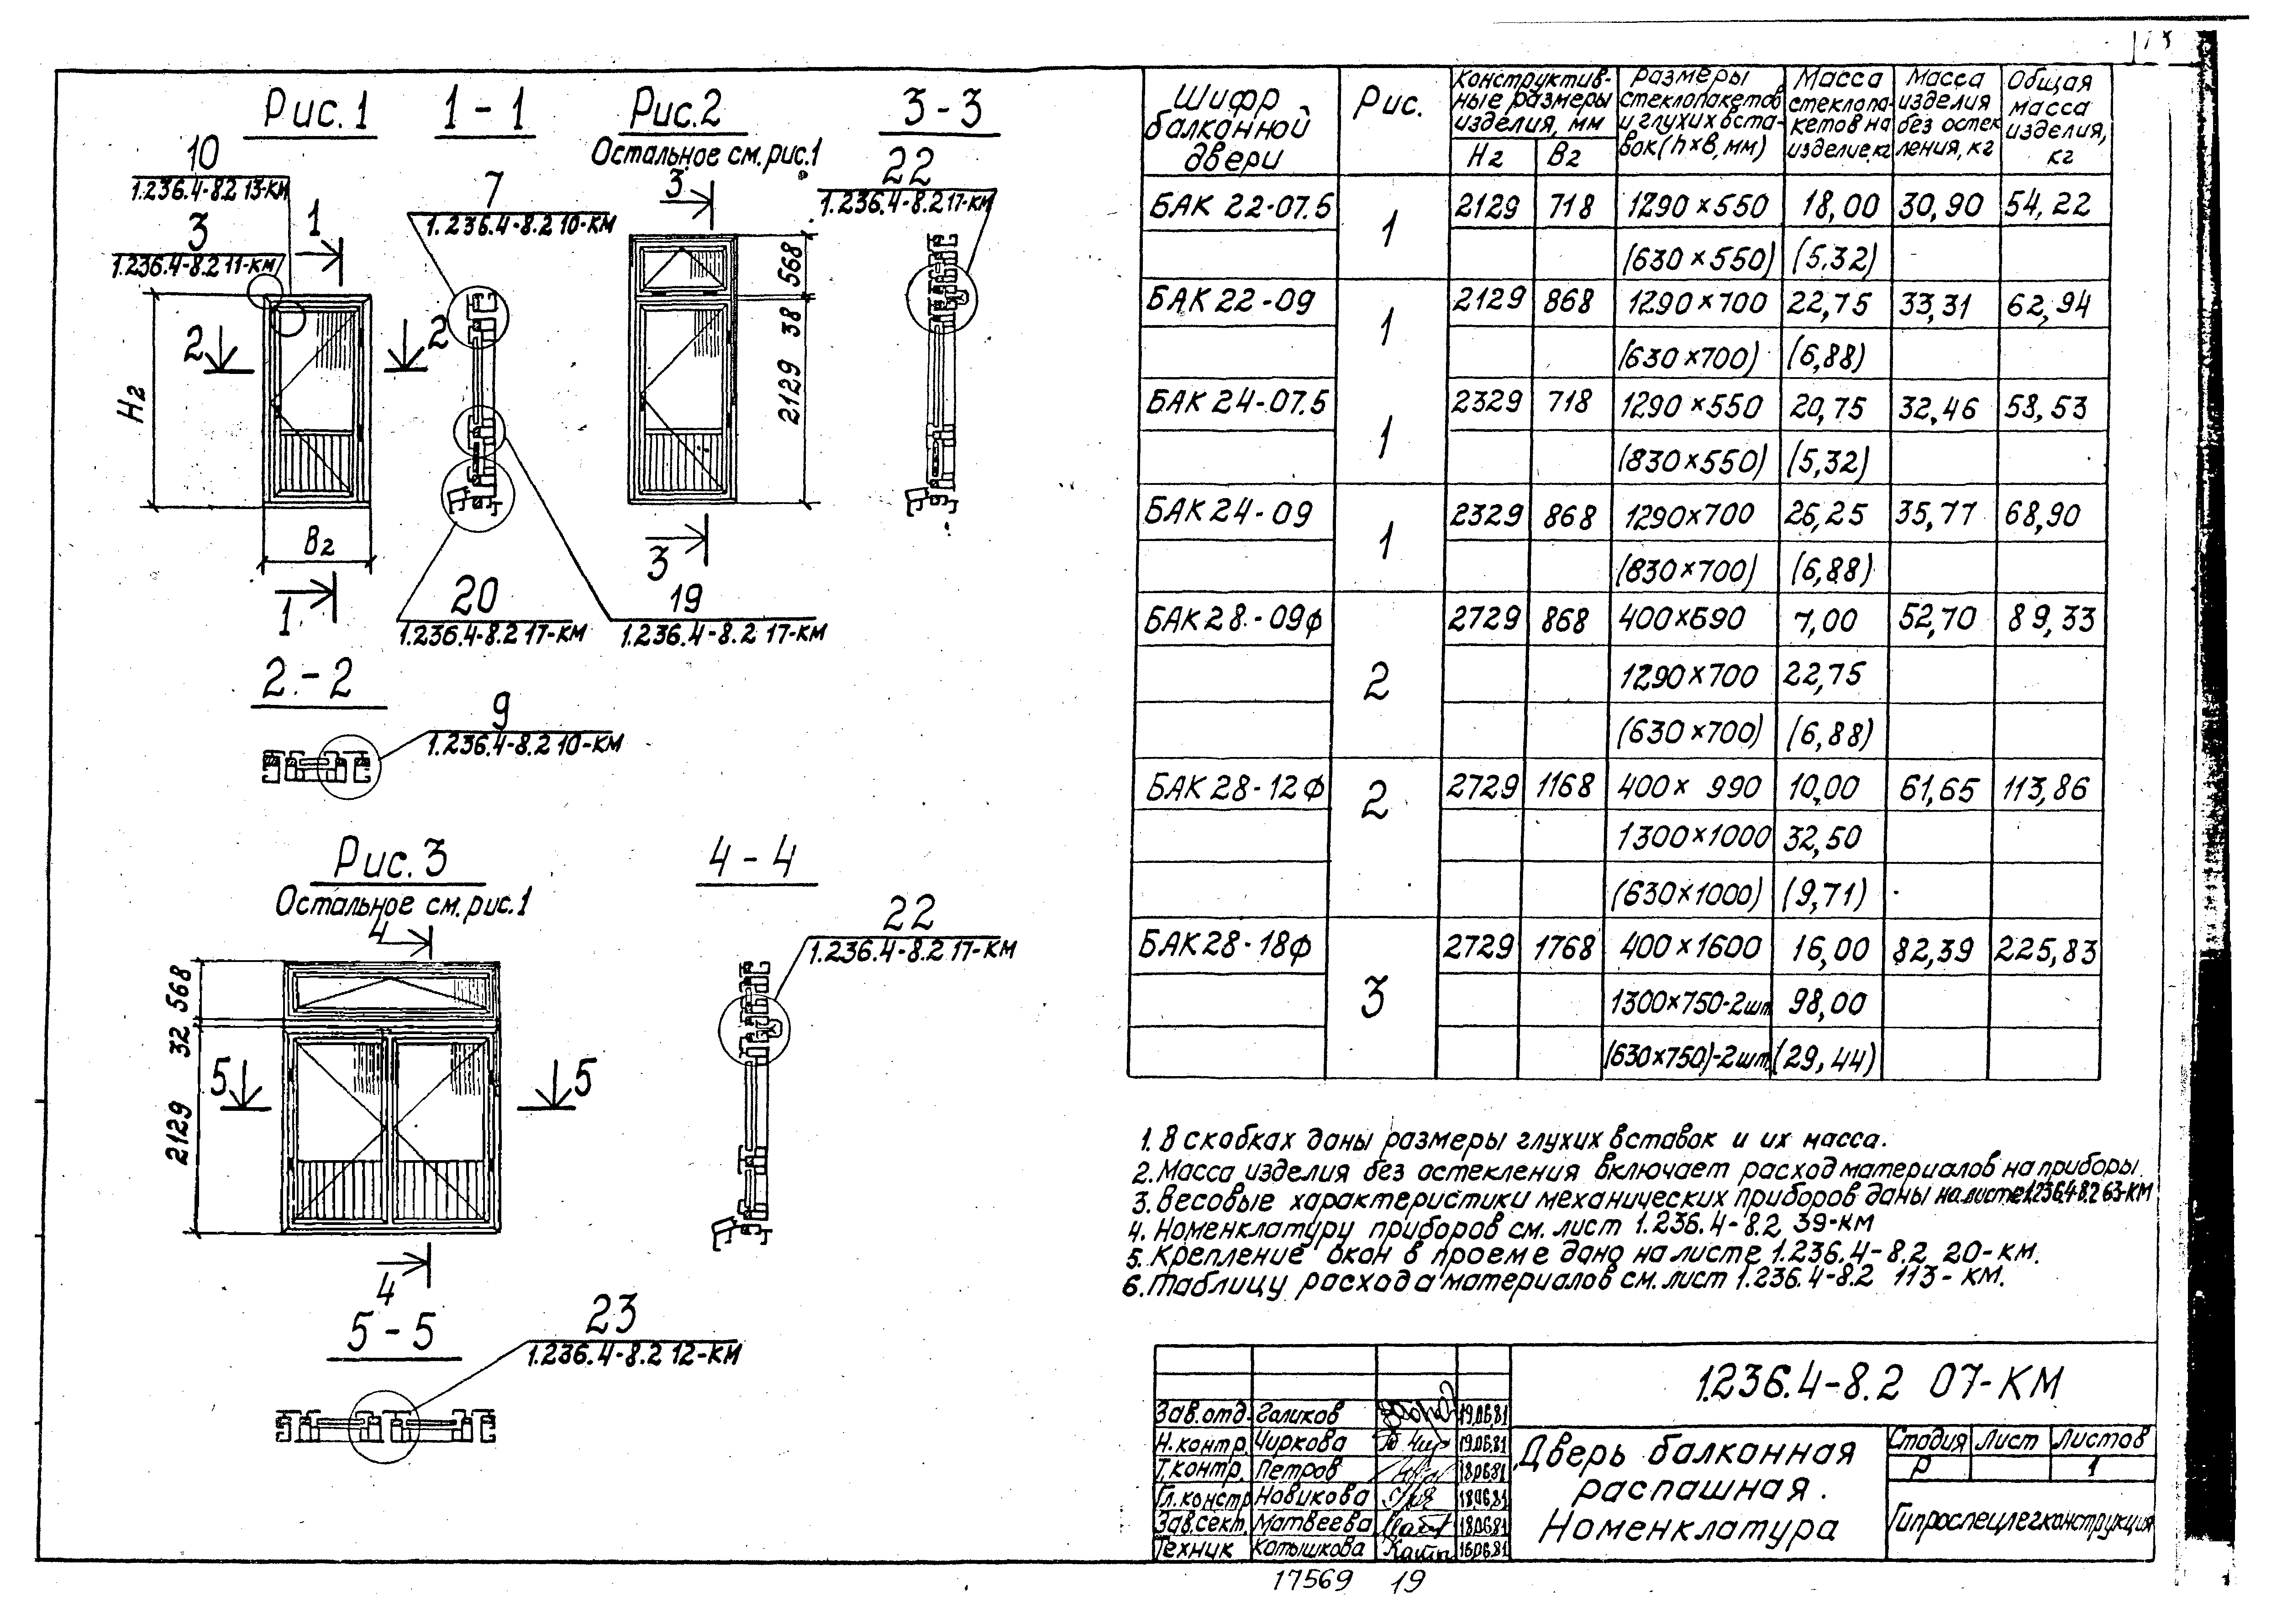 Рис.1
1-1
Рис.2
Остальное см.рис.1
3-3
10
1.236.4-8.2 13-КМ
3
1.236.4-8.2 11-КМ
1
7
1.236.4-8.2 10-КМ
3
22
1.236.4-8.2 17-КМ
2
2
H2
B2
1
568
38
2129
3
20
1.236.4-8.2 17-КМ
19
1.236.4-8.2 17-КМ
2-2
9
1.236.4-8.2 10-КМ
Рис.3
Остальное см.рис.1
4-4
4
22
1.236.4-8.2 17-КМ
568
32
2129
5
5
4
5-5
23
1.236.4-8.2 12-КМ
Шифр балканной двери
Рис.
Конструктив-ные размеры изделия, мм
H2
B2
Размеры стеклопакетов и глухих вста-вок (h×в, мм)
Масса стеклопа-кетов на изделие, кг
Масса изделия без остек ления, кг
Общая масса изделия, кг
БАК 22-07.5 1 2129 718 1290×550 18,00 30,90 54,22
(630×550) (5,32)
БАК 22-09 1 2129 868 1290×700 22,75 33,31 62,94
(630×700) (6,88)
БАК 24-07.5 1 2329 718 1290×550 20,75 32,46 58,53
(830×550) (5,32)
БАК 24-09 1 2329 868 1290×700 26,25 35,77 68,90
(830×700) (6,88)
БАК 28-09ф 2 2729 868 400×690 7,00 52,70 89,33
1290×700 22,75
(630×700) (6,88)
БАК 28-12ф 2 2729 1168 400× 990 10,00 61,65 113,86
1300×1000 32,50
(630×1000) (9,71)
БАК 28-18ф 3 2729 1768 400×1600 16,00 82,39 225,83
1300×750-2шт 98,00
(630×750)-2шт. (29,44)
1. В скобках даны размеры глухих вставок и их масса.
2. Масса изделия без остекления включает расход материалов на приборы.
3. Весовые характеристики механических приборов даны на листе 1.236.4-8.2 63-КМ
4. Номенклатуру приборов см. лист 1.236.4-8.2 39-КМ
5. Крепление окон в проеме дано на листе 1.236.4-8.2 20-КМ.
6. Таблицу расхода материалов см. лист 1.236.4-8.2 113-КМ.
1.236.4-8.2 07-КМ
Зав.отд. Голиков 19.06.81
Н.контр. Чиркова 19.06.81
Т.контр. Петров 18.06.81
Гл.констр Новикова 18.06.81
Зав.сект. Матвеева 18.06.81
Техник Катышкова 16.06.81
Дверь балканная
распашная.
Номенклатура
Стадия Лист Листов
Р 1
Гипроспецлегконструкция
17569 19